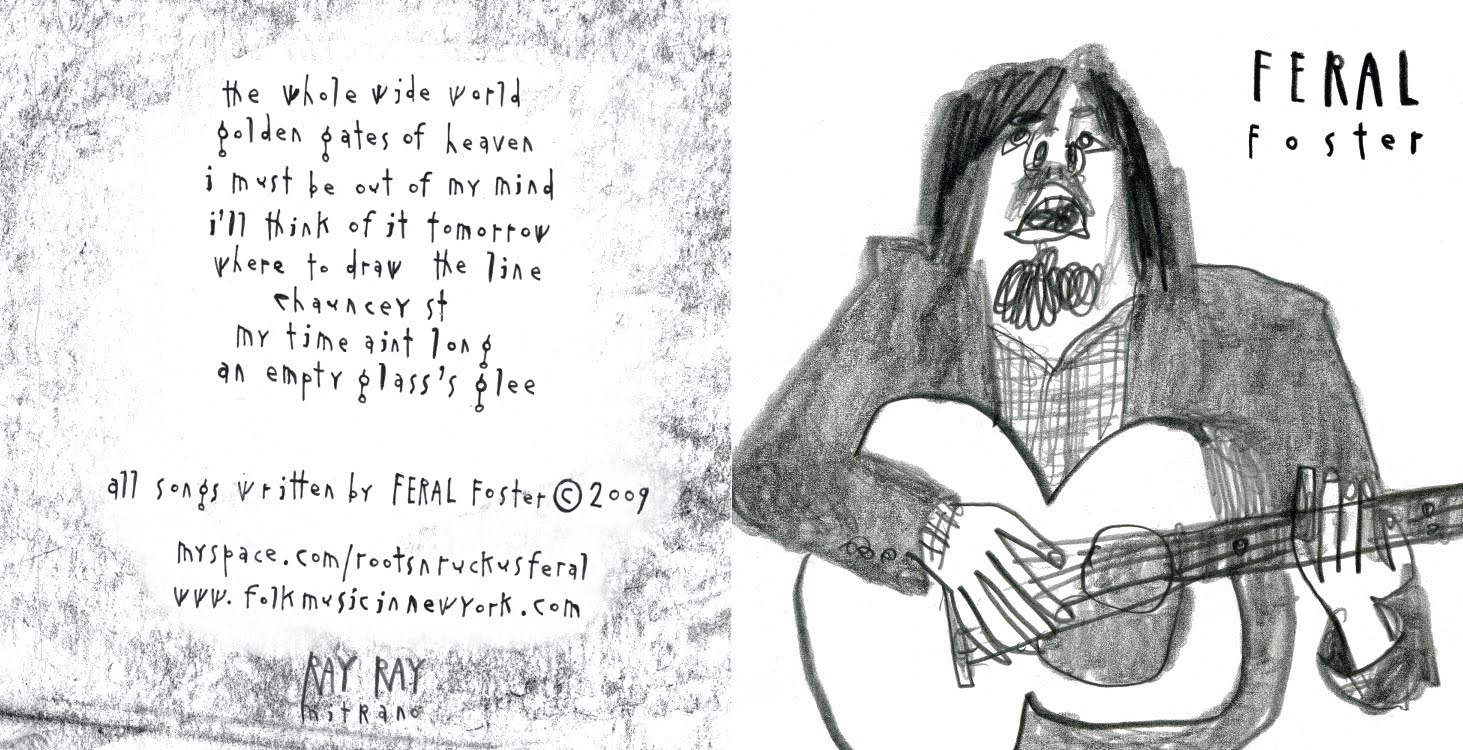 the whole wide world
golden gates of heaven
i must be out of my mind
i'll think of it tomorrow
where to draw the line
chauncey st
my time aint long
an empty glass's glee
all songs written by FERAL Foster © 2009
myspace.com/rootsnruckusferal
www.folkmusicinnewyork.com
RAY RAY
mitRano
FERAL
Foster